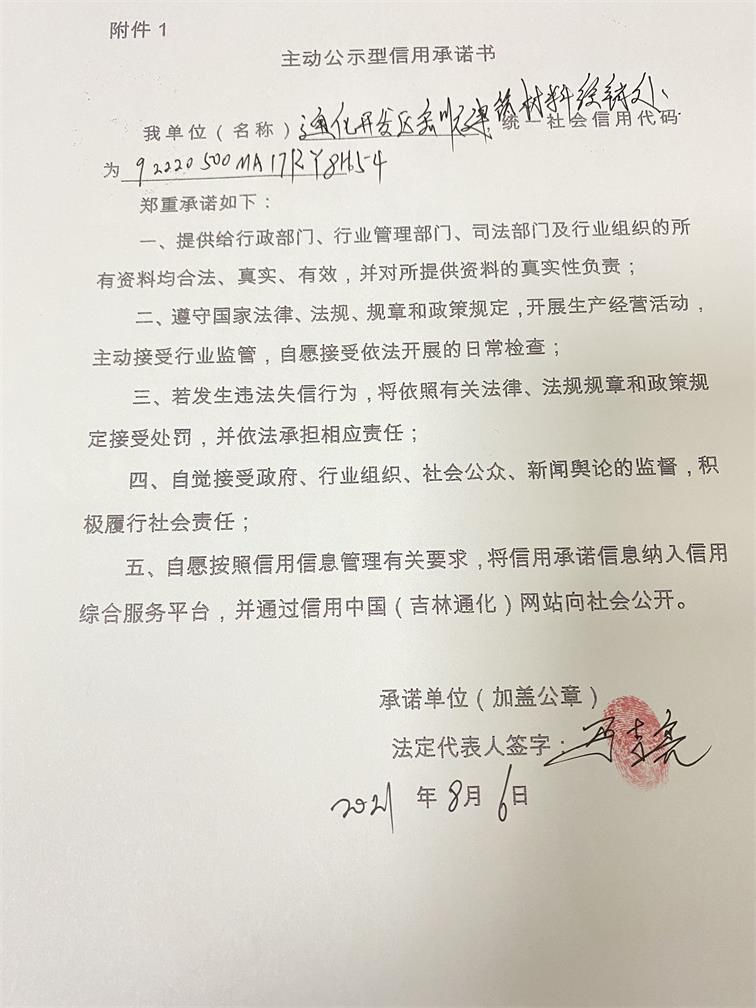 附件1
主动公示型信用承诺书
我单位（名称）通化开发区鑫顺达建筑材料经销处、统一社会信用代码
为 92220500MA17RY8H54
郑重承诺如下：
一、提供给行政部门、行业管理部门、司法部门及行业组织的所
有资料均合法、真实、有效，并对所提供资料的真实性负责；
二、遵守国家法律、法规、规章和政策规定，开展生产经营活动，
主动接受行业监管，自愿接受依法开展的日常检查；
三、若发生违法失信行为，将依照有关法律、法规规章和政策规
定接受处罚，并依法承担相应责任；
四、自觉接受政府、行业组织、社会公众、新闻舆论的监督，积
极履行社会责任；
五、自愿按照信用信息管理有关要求，将信用承诺信息纳入信用
综合服务平台，并通过信用中国（吉林通化）网站向社会公开。
承诺单位（加盖公章）
法定代表人签字：
2021 年 8月 6日